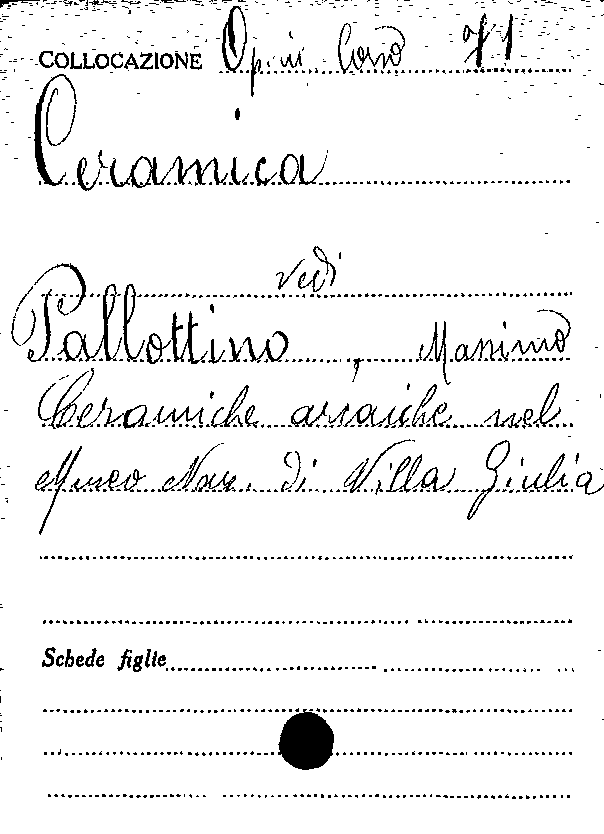 COLLOCAZIONE Op. in Corso
Ceramica
vedi
Pallottino, Massimo
Ceramiche arcaiche nel
Museo Naz. di Villa Giulia
Schede figlie